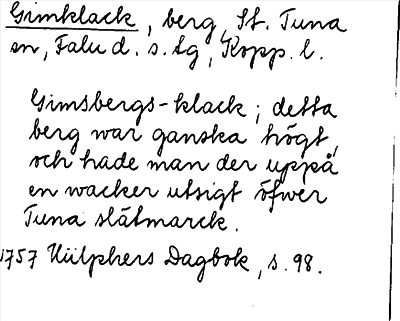 Gimklack, berg, St. Tuna
sn, Falu d. s. lg, Kopp. l.
Gimsbergs-klack; detta
berg war ganska högt,
och hade man der uppå
en wacker utsigt öfwer
Tuna slätmarck.
1757 Hülphers Dagbok, s. 98.